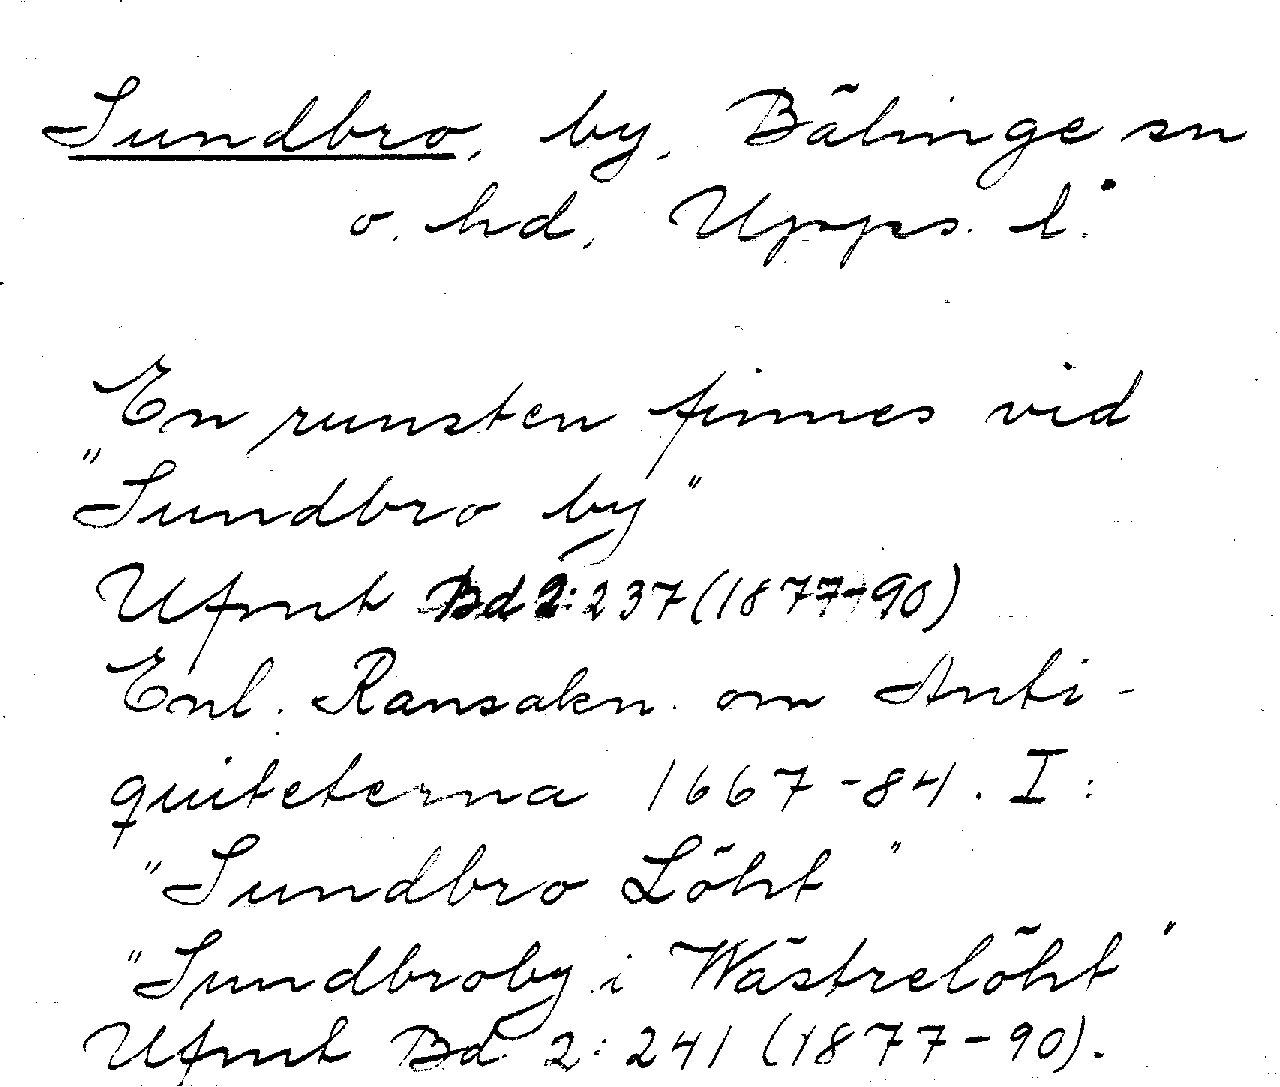 Sundbro, by, Bälinge sn
o. hd, Upps. l.
En runsten finnes vid
"Sundbro by"
Ufmt Bd 2:237 (1877-90)
Enl. Ransakn. om Anti-
quiteterna 1667-84. I:
"Sundbro Löht"
"Sundbroby i Wästrelöht"
Ufmt Bd 2:241 (1877-90).